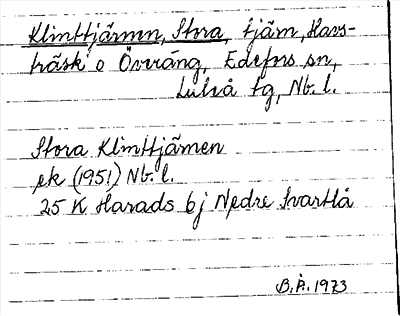 Klinttjärnen, Stora, tjärn, Havs-
träsk o Överäng, Edefors sn,
Luleå tg, Nb. l.
Stora Klinttjärnen
ek (1951) Nb. l.
25 K Harads 6j Nedre Svartlå
B.Å. 1973